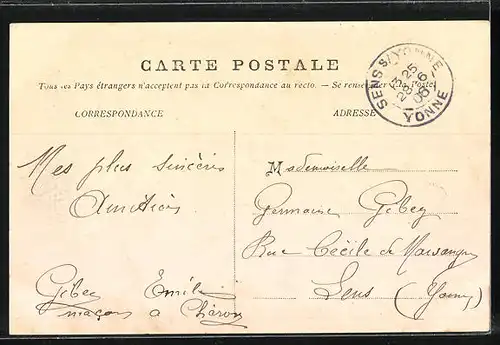 CARTE POSTALE
Tous les Pays étrangers n'acceptent pas la Correspondance au recto. — Se renseigner à la Poste.
CORRESPONDANCE
ADRESSE
SENS S/YONNE
YONNE
Mes plus sincères
Amitiés
Gebey Emile
maçon à
Mademoiselle
Germaine Gebey
Rue Cécile de Marsangy
Sens (Yonne)